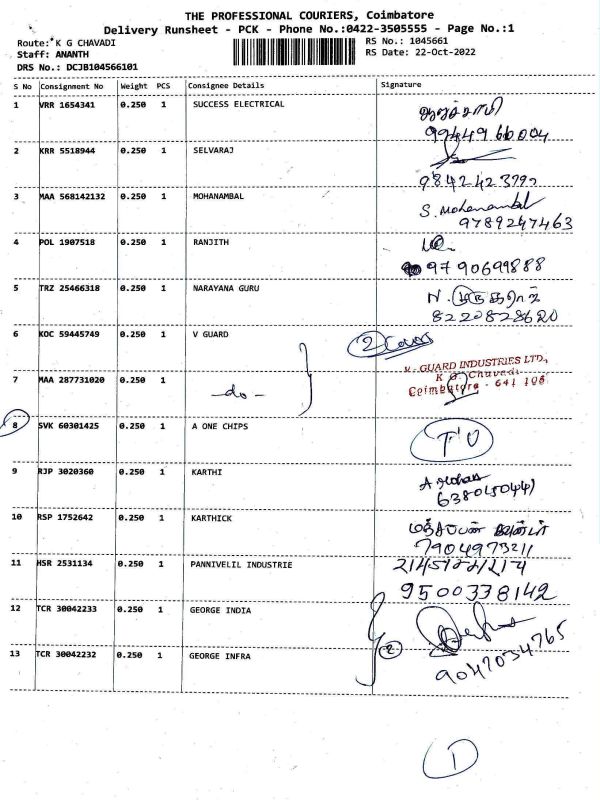 THE PROFESSIONAL COURIERS, Coimbatore
Delivery Runsheet - PCK - Phone No.:0422-3505555 - Page No.:1
Route: K G CHAVADI
RS No.: 1045661
Staff: ANANTH
RS Date: 22-Oct-2022
DRS No.: DCJB104566101
S No Consignment No Weight PCS Consignee Details Signature
1 VRR 1654341 0.250 1 SUCCESS ELECTRICAL
2 KRR 5518944 0.250 1 SELVARAJ
3 MAA 568142132 0.250 1 MOHANAMBAL S. Mohanambal
9789247463
4 POL 1907518 0.250 1 RANJITH
9790699888
5 TRZ 25466318 0.250 1 NARAYANA GURU
8220828620
6 KOC 59445749 0.250 1 V GUARD 2
V-GUARD INDUSTRIES LTD.,
K G Chavadi
Coimbatore - 641 105
7 MAA 287731020 0.250 1 -do-
8 SVK 60301425 0.250 1 A ONE CHIPS
9 RJP 3020360 0.250 1 KARTHI
10 RSP 1752642 0.250 1 KARTHICK
7904973211
11 HSR 2531134 0.250 1 PANNIVELIL INDUSTRIE
9500338142
12 TCR 30042233 0.250 1 GEORGE INDIA
13 TCR 30042232 0.250 1 GEORGE INFRA 2
9047034765
1